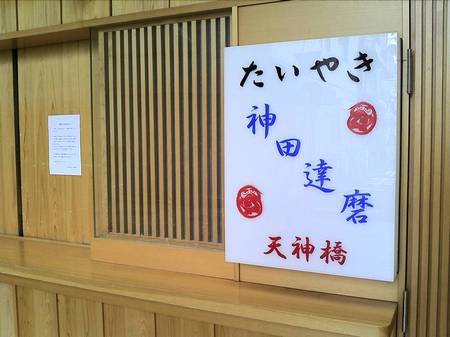 たいやき
神田達磨
天神橋